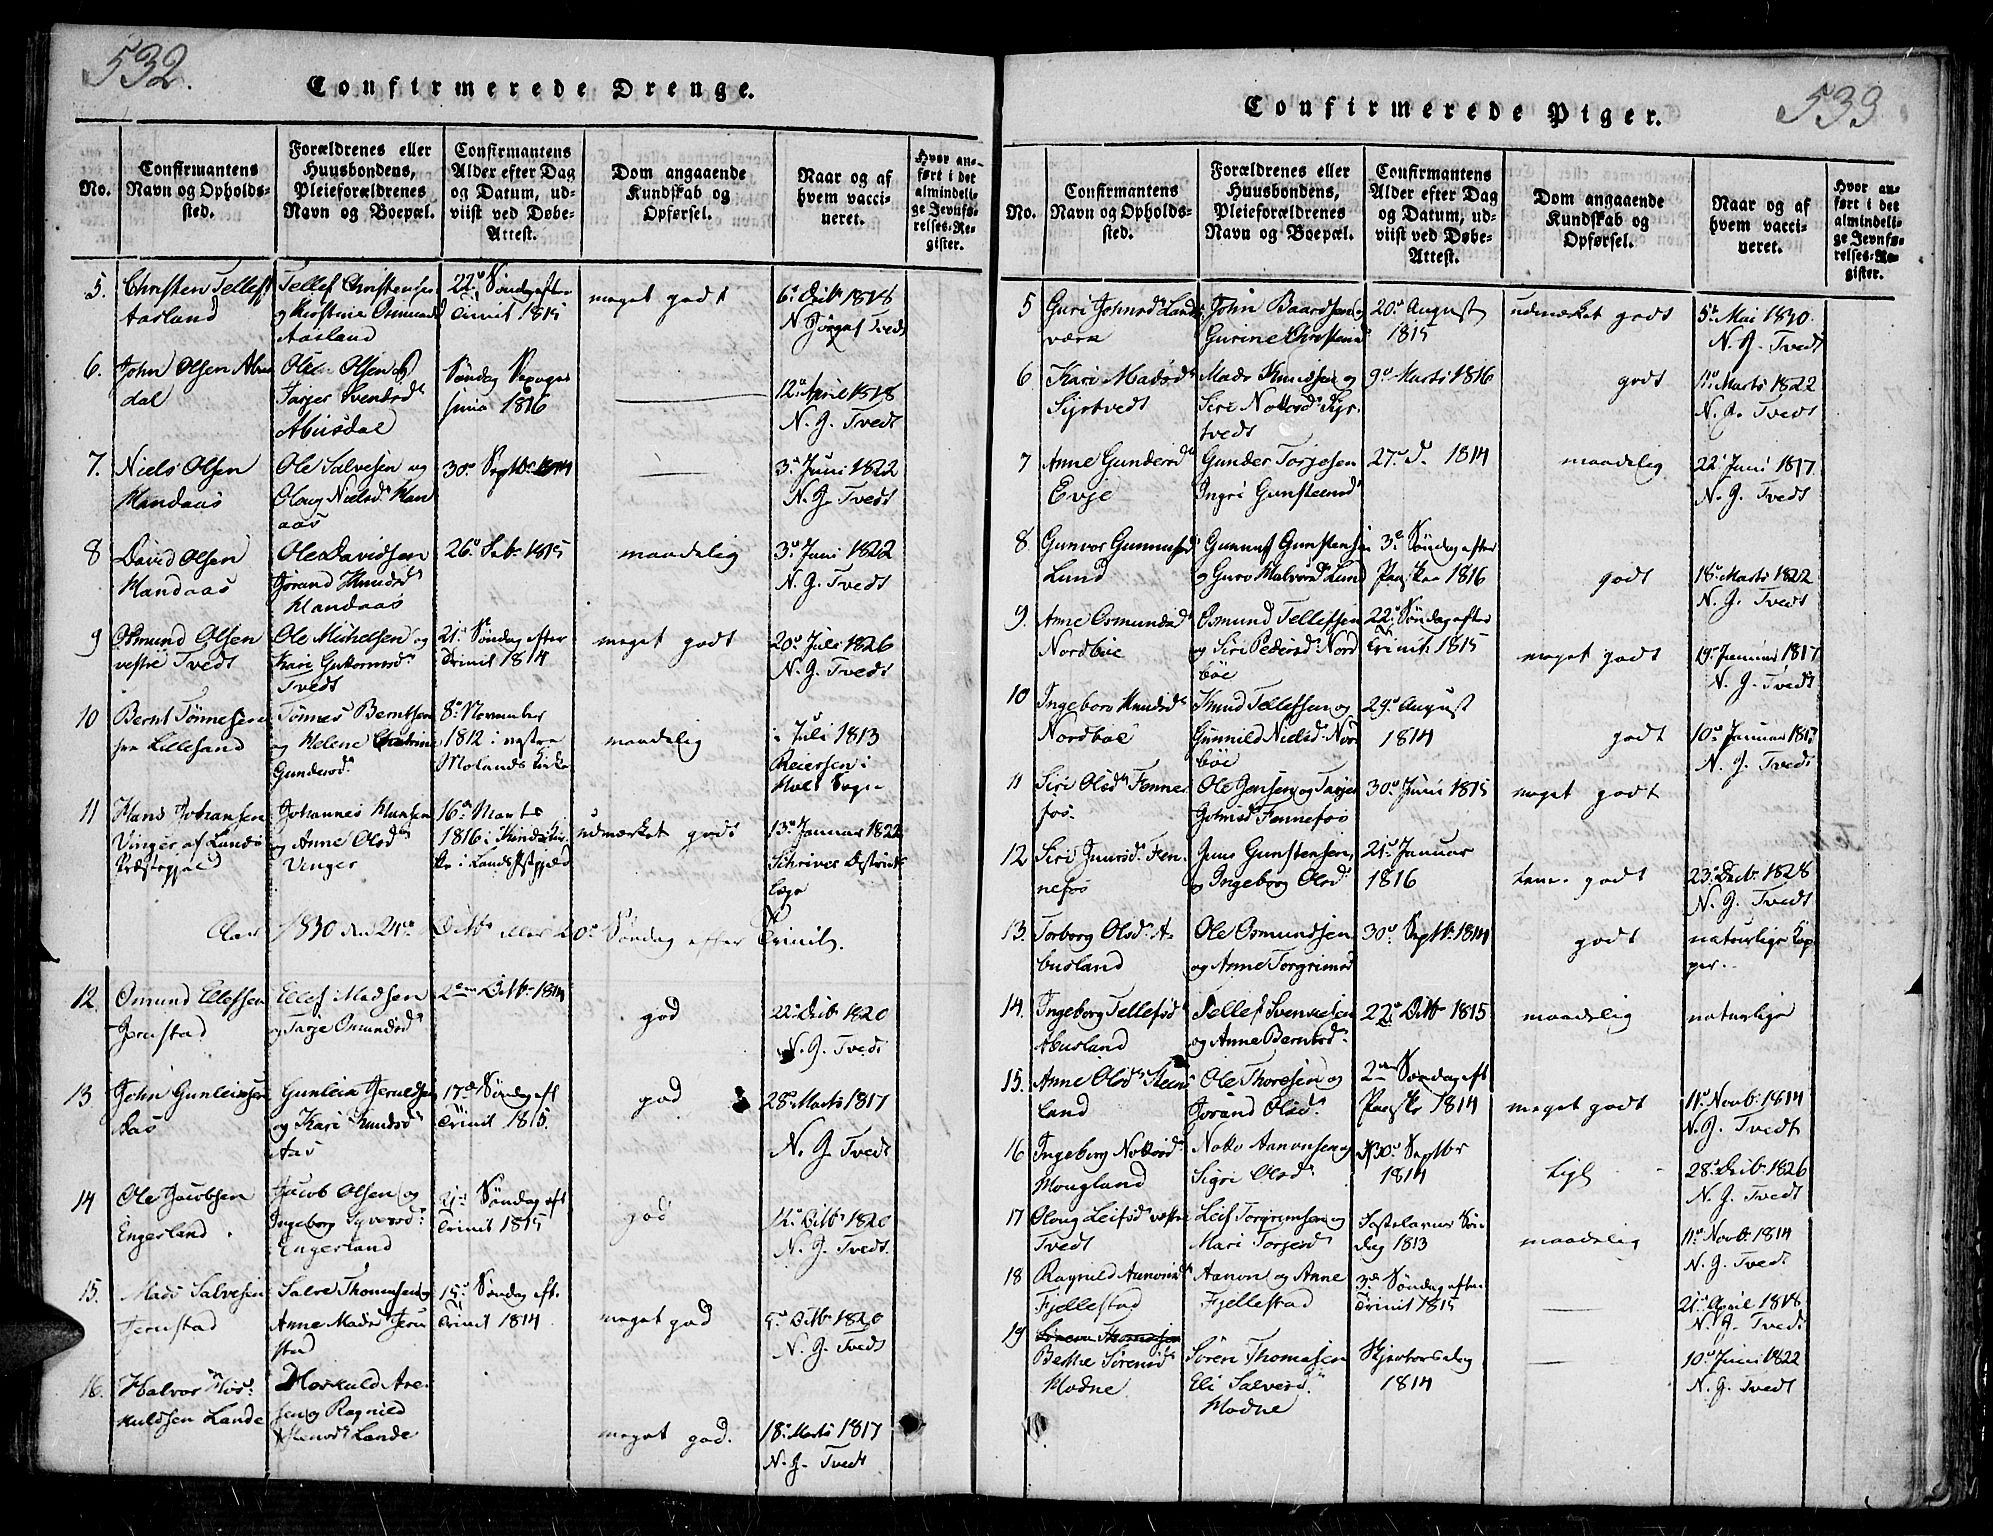 532.
Confirmerede Drenge.
No.
Confirmantens
Navn og Opholds-
sted.
Forældrenes eller
Huusbondens,
Pleieforældrenes
Navn og Boepæl.
Confirmantens
Alder efter Dag
og Datum, ud-
viist ved Døbe-
Attest.
Dom angaaende
Kundskab og
Opførsel.
Naar og af
hvem vacci-
neret.
Hvor an-
ført i det
almindeli-
ge Jevnfø-
relses-Re-
gister.
5.
Christen Tellefs
Aasland
Tellef Christensen
og Kirstine Osmunds
Aasland
22de Søndag efter
Trinit 1815
meget godt
6te Octb 1818
N. Jørgs Tvedt
6.
John Olsen Abus
dal
Ole Olsen og
Tarjer Svendsd
Abusdal
Søndag Sexages
sima 1816
12te April 1818
N. G. Tvedt
7.
Niels Olsen
Handaas
Ole Salvesen og
Oloug Nielsd Han
aas
30te Septb 1814
3die Juni 1822
N. G. Tvedt
8
David Olsen
Handaas
Ole Davidsen
Jorand Knudsd
Handaas
26de Feb 1815
maadelig
3die Juni 1822
N. G. Tvedt
9
Osmund Olsen
vestre Tvedt
Ole Michelsen og
Kari Guttormsd
Tvedt
21de Søndag efter
Trinit 1814
meget godt
20de Juli 1826
N. G. Tvedt
10
Bernt Tønnesen
fra Lillesand
Tønnes Berntsen
og Helene Cathrine
Gundersd
8de November
1812 i vestre
Molands Kirke
maadelig
i Juli 1813
Reiersen i
Hols Sogn
11
Hans Johansen
Vinger af Lands
Præstegjeld
Johannes Hansen
og Anne Olsd
Vinger
16de Marts
1816 i Kinds Kir
ke i Lands Pstgjeld
udmærket godt
13de Januar 1822
Schriver Districts
læge
Aar 1830 den 24de Octb eller 20de Søndag efter Trinit.
12.
Osmund Ellefsen
Jernstad
Ellef Madsen
og Tarje Osmundsd
2den Octb 1814
god
22de Octb 1820
N. G. Tvedt
13.
John Gunleiksen
Aas
Gunleik Jeruldsen
og Kari Knudsd
Aas
17de Søndag eft
Trinit 1815.
god
28de Marts 1817
N. G. Tvedt
14
Ole Jacobsen
Engerland.
Jacob Olsen og
Ingeborg Syversd
Engerland
21de Søndag eft
Trinit 1815
god
12te Octb 1820
N. G. Tvedt
15.
Mads Salvesen
Jernstad
Salve Thomesen og
Anne Madsd Jern
stad
15de Søndag eft.
Trinit 1814.
meget god
5te Octb 1820
N. G. Tvedt
16.
Halvor Hos-
kuldsen Lande
Hoskuld Are-
sen og Ragnild
Steensd Lande
meget god.
18de Marts 1817
N. G. Tvedt
533
Confirmerede Piger.
No.
Confirmantens
Navn og Opholds-
sted.
Forældrenes eller
Huusbondens,
Pleieforældrenes
Navn og Boepæl.
Confirmantens
Alder efter Dag
og Datum, ud-
viist ved Døbe-
Attest.
Dom angaaende
Kundskab og
Opførsel.
Naar og af
hvem vacci-
neret.
Hvor an-
ført i det
almindeli-
ge Jevnfø-
relses-Re-
gister.
5
Guri Johnsd Lands
værk
John Baardsen og
Gurine Christensd
20de August
1815
udmærket godt
5te Mai 1830.
N. G. Tvedt
6
Kari Madsd
Syrtvedt
Mads Knudsen og
Siri Nottesd Syr-
tvedt
9de Marts 1816
godt
11te Marts 1822
N. G. Tvedt
7
Anne Gundersd
Evje
Gunder Torjesen
Ingri Gunsteensd
27de D. 1814
maadelig
22de Juni 1817
N. G. Tvedt
8
Gunvor Gunnufsd
Lund
Gunnuf Gunstensen
og Guro Halvorsd Lund
3die Søndag efter
Paaske 1816
godt
18de Marts 1822
N. G. Tvedt
9.
Anne Osmundsd
Nordbøe
Osmund Tellefsen
og Siri Pedersd Nord
bøe
22de Søndag efter
Trinit. 1815
meget godt
19de Januar 1817
N. G. Tvedt
10
Ingeborg Knudsd
Nordbøe
Knud Tellefsen og
Gunnild Nielsd Nord
bøe
29de August
1814
godt
10de Januar 1817
N. G. Tvedt
11
Siri Olsd Fennef
fos.
Ole Jensen og Tarjer
Johnsd Fennefos
30te Juni 1815
meget godt
12
Siri Juursd Fen-
nefos
Juur Gunstensen,
og Ingeborg Olsd
21de Januar
1816
godt
23de Octb 1828
N. G. Tvedt
13.
Torborg Olsd A-
busland
Ole Osmundsen
og Anne Torgrimsd
30te Septb 1814
godt
naturlige Kop-
per.
14.
Ingeborg Tellefsd
Abusland
Tellef Svenudsen
og Anne Berntsd
22de Octb 1815
maadelig
naturlige
15.
Anne Olsd Steins
land
Ole Thoresen og
Jorand Olsd
2den Søndag eft
Paaske 1814
meget godt
11te Novb 1814
N. G. Tvedt
16
Ingeborg Nottosd
Mougland
Notto Aanonsen og
Sigri Olsd
30te Septbr
1814
ligl
28de Octb 1826
N. G. Tvedt
17
Oloug Leifsd vestre
Tvedt
Leif Torgrimsen og
Mari Torjersd
Fastelavns Søn
dag 1813
maadelig
11te Novb 1814
N. G. Tvedt
18
Ragnild Aanonsd
Fjellestad
Aanon og Anne
Fjellestad
3die Søndag efter
Trinit 1815
21de April 1818
N. G. Tvedt
19
Sørene Thomassen
Berthe Sørensd
Hodne
Søren Thomasen
Eli Salvesd
Hodne
Skjærtorsdag
1814
10de Juni 1822
N. G. Tvedt